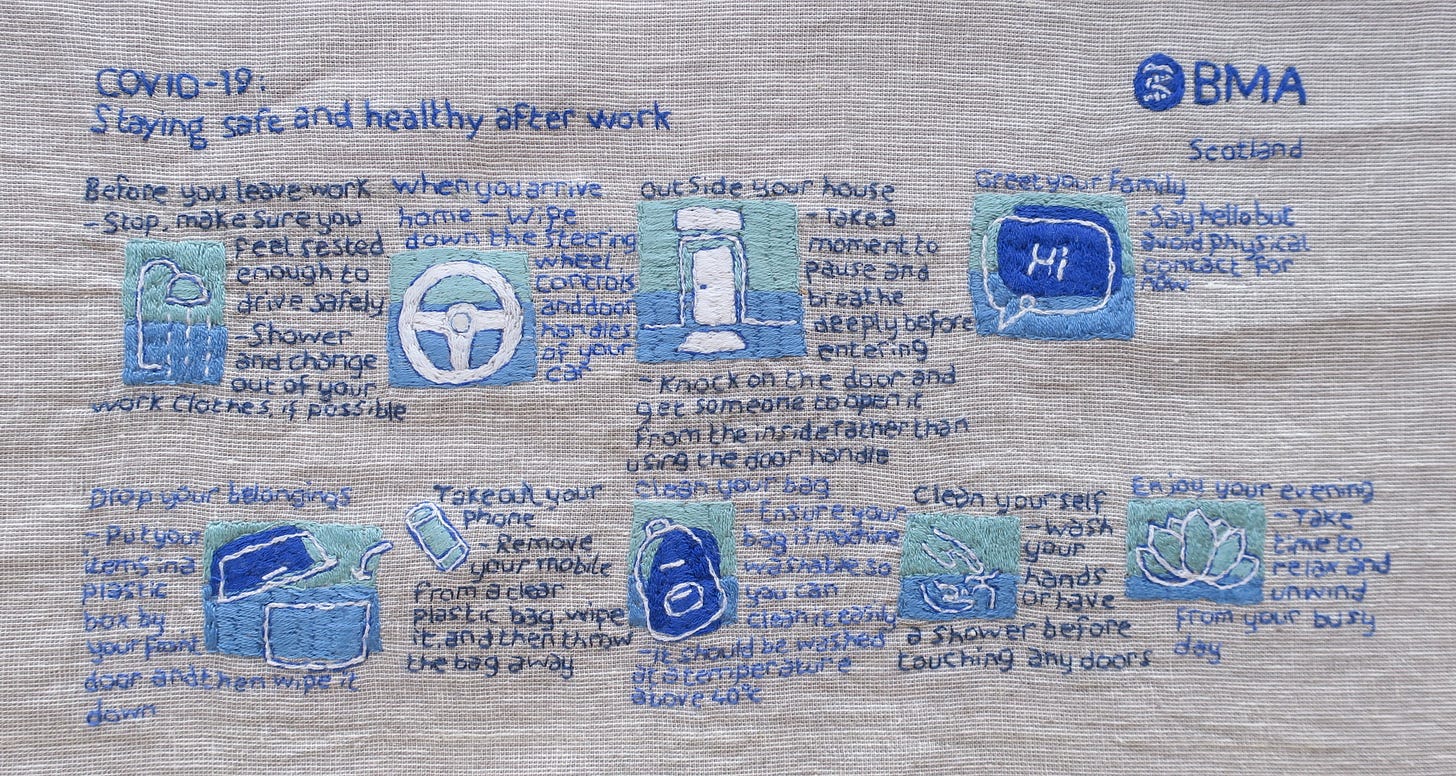 COVID-19:
Staying safe and healthy after work
BMA
Scotland
Before you leave work
- Stop, make sure you
feel rested
enough to
drive safely
- Shower
and change
out of your
work clothes, if possible
when you arrive
home - Wipe
down the steering
wheel
controls
and door
handles
of your
car
outside your house
- Take a
moment to
pause and
breathe
deeply before
entering
- Knock on the door and
get someone to open it
from the inside rather than
using the door handle
Greet your Family
- Say hello but
avoid physical
contact for
now
Hi
Drop your belongings
- Put your
items in a
plastic
box by
your front
door and then wipe it
down
Take out your
phone
- Remove
your mobile
from a clear
plastic bag, wipe
it, and then throw
the bag away
clean your bag
- Ensure your
bag is machine
washable so
you can
clean it easily
- It should be washed
at a temperature
above 40°c
Clean yourself
- wash
your
hands
or have
a shower before
touching any doors
Enjoy your evening
- Take
time to
relax and
unwind
from your busy
day